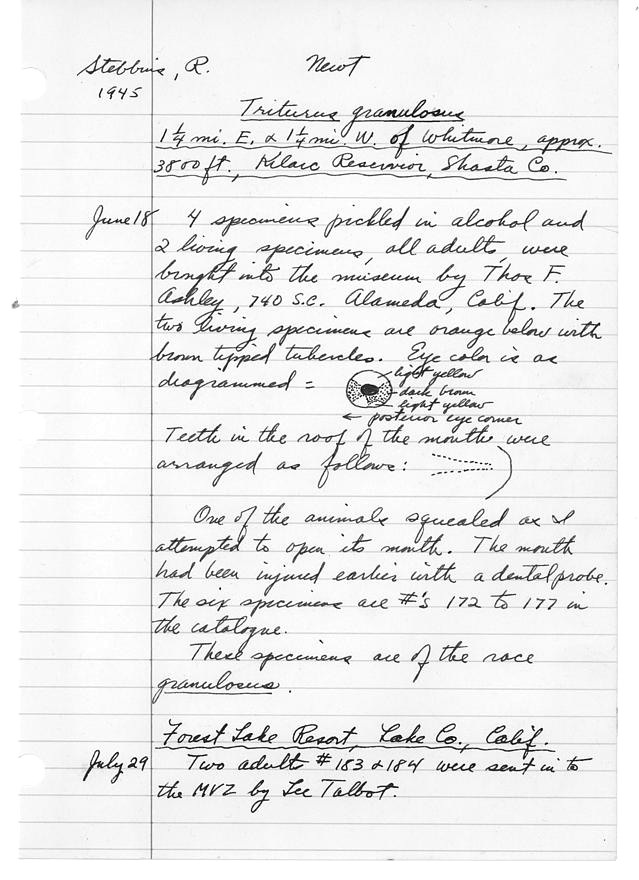 Stebbins, R. Newt
1945
Triturus granulosus
1¼ mi. E. & 1¼ mi. W. of Whitmore, approx.
3800 ft., Kilarc Reservior, Shasta Co.
June 18 4 specimens pickled in alcohol and
2 living specimens, all adults, were
brought into the museum by Thos F.
Ashley, 740 S.C. Alameda, Calif. The
two living specimens are orange below with
brown tipped tubercles. Eye color is as
diagrammed =
light yellow
dark brown
light yellow
← posterior eye corner
Teeth in the roof of the mouths were
arranged as follows:
One of the animals squealed as I
attempted to open its mouth. The mouth
had been injured earlier with a dental probe.
The six specimens are #'s 172 to 177 in
the catalogue.
These specimens are of the race
granulosus.
Forest Lake Resort, Lake Co., Calif.
July 29 Two adults # 183 & 184 were sent in to
the MVZ by Lee Talbot.